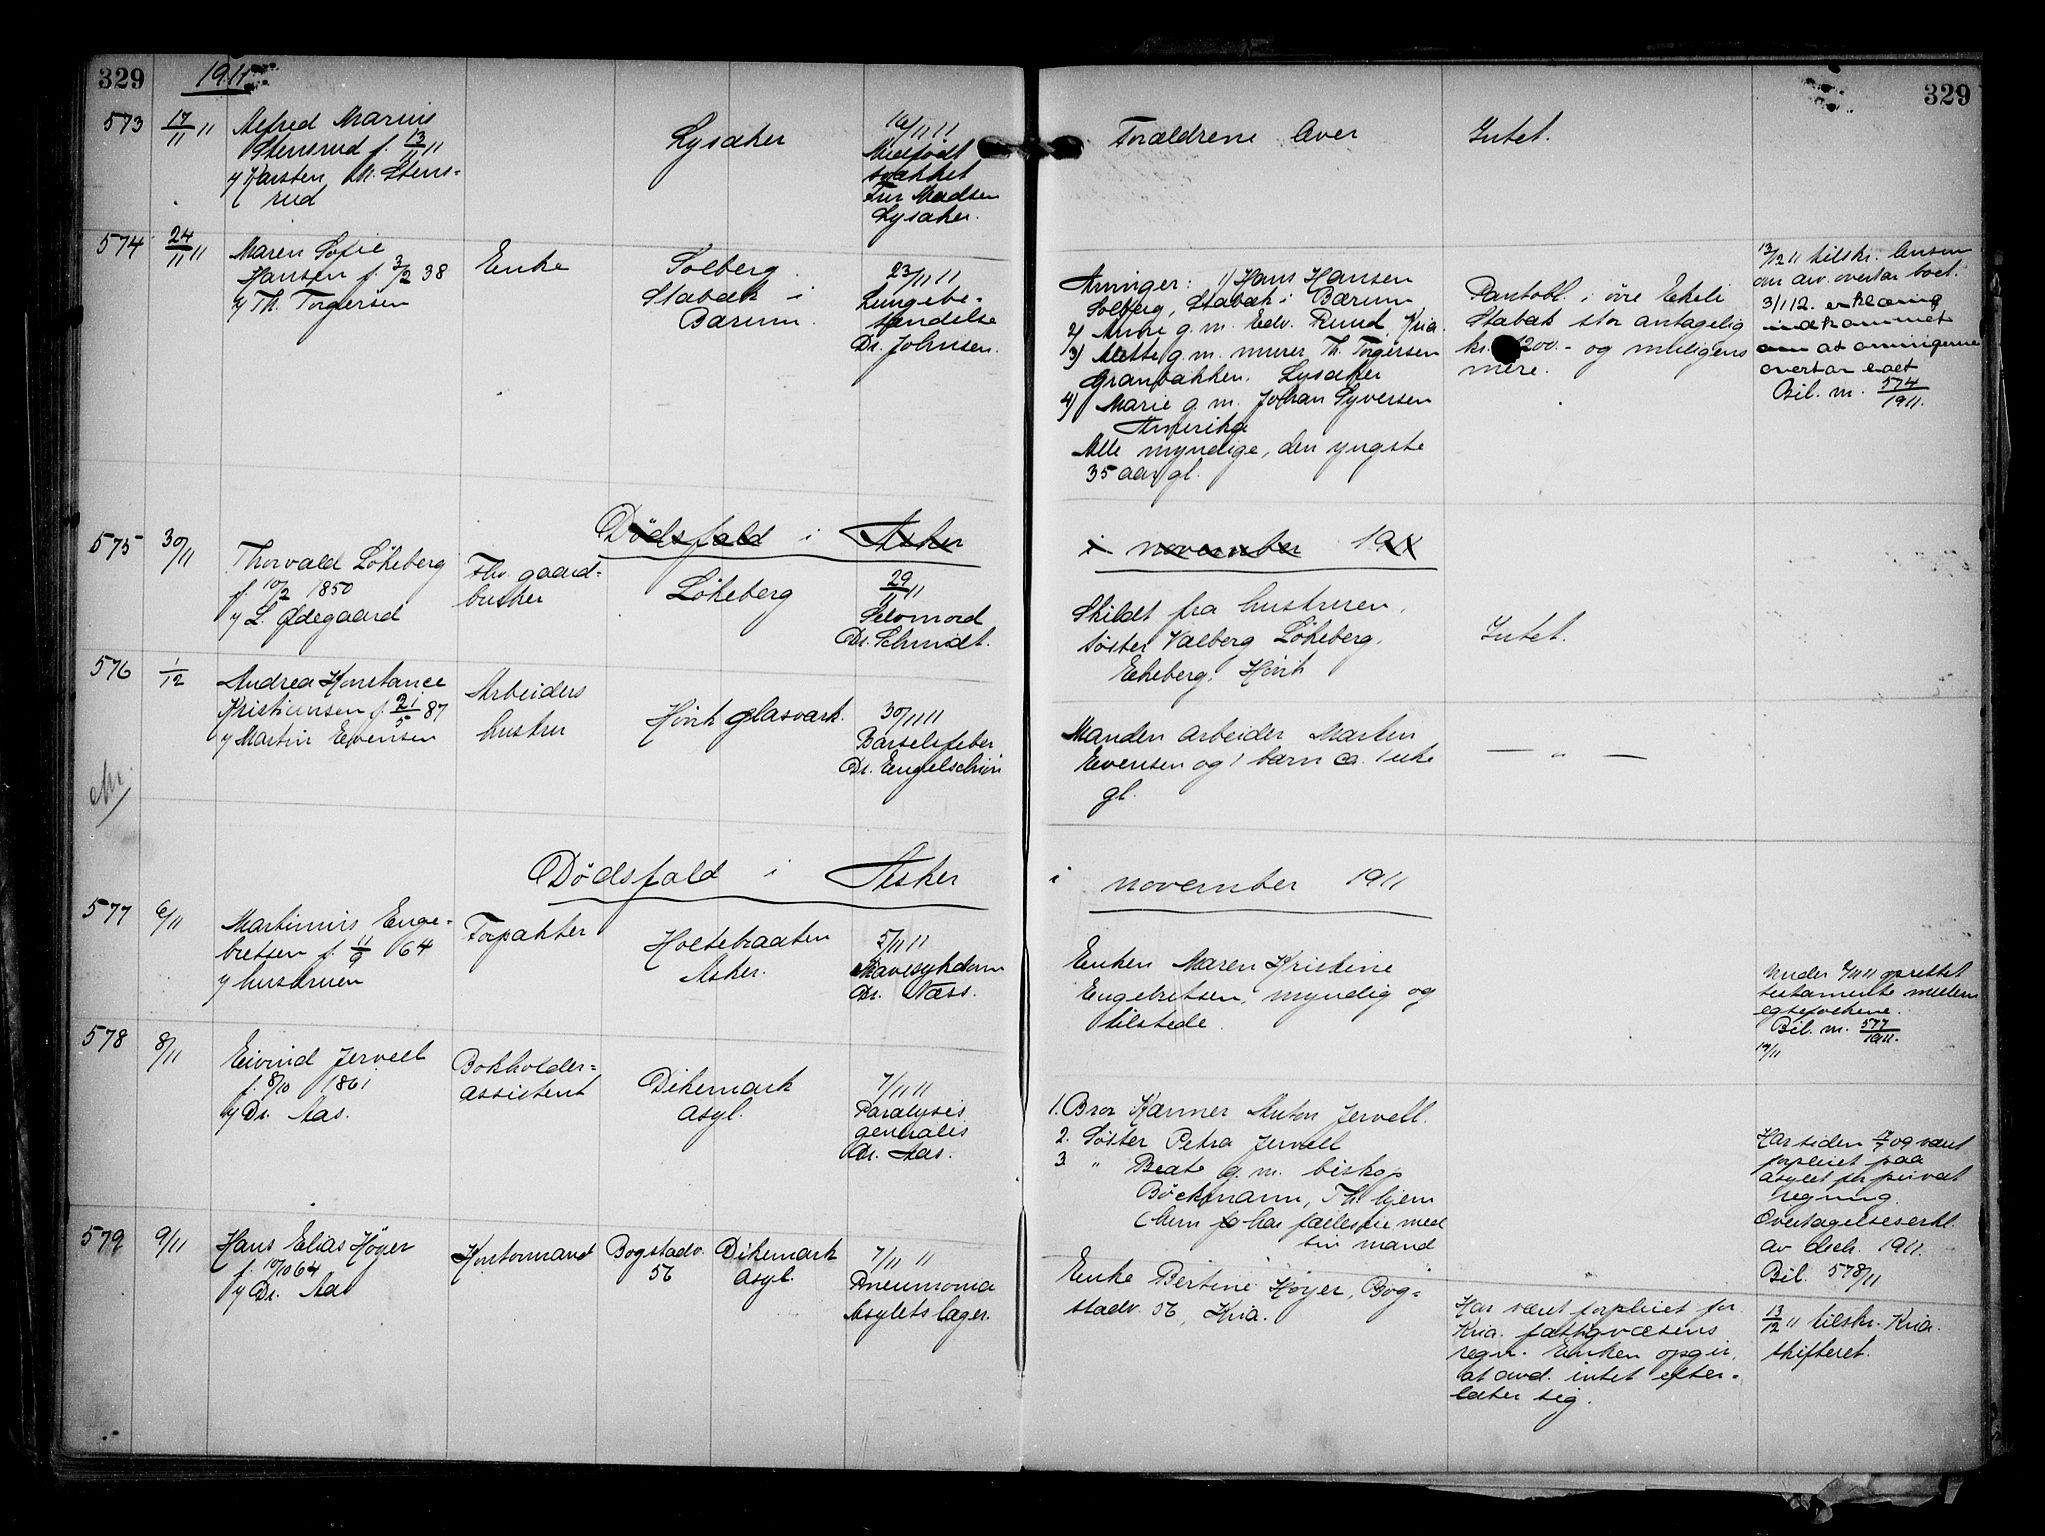 329
1911
329
573
17/11 11
Alfred Marius
Stensrud f. 13/11 11
v/ Karsten Th. Stens-
rud
Lysaker
16/11 11
Medfödt
svakhet
Fru Madsen
Lysaker.
Forældrene lever
Intet.
574
24/11 11
Maren Sofie
Hansen f. 3/2 38
v/ Th. Torgersen
Enke
Solberg
Stabæk i
Bærum.
23/11 11
Lungebe-
tændelse
Dr. Johnsen.
Arvinger: 1) Hans Hansen
Solberg, Stabæk i Bærum
2) Andre g. m. Edv. Ruud, Kria.
3) Mette g. m. murer Th. Torgersen
Granbakken, Lysaker
4) Marie g. m. Johan Syversen
Amerika
Alle myndige, den yngste
35 aar gl.
Pantobl. i övre Ekeli
Stabæk stor antagelig
kr. 1200.- og muligens
mere.
13/12 11 tilskr. lensm.
om arv. overtar boet.
3/1 12. erklæring
indkommet
om at arvingerne
overtar boet
Bil. m. 574/1911.
575
30/11
Dödsfald i Asker
i november 1911
Thorvald Lökeberg
f. 10/2 1850
v/ L. Ødegaard
Fhv. gaard-
bruker
Lökeberg
29/11 11
Selvmord
Dr. Schmidt.
Skildt fra hustruen.
söster Valberg Lökeberg,
Ekeberg, Hövik
Intet.
576
1/12
Andrea Konstance
Kristiansen f. 21/5 87
v/ Martin Evensen
Arbeiders
hustru
Hövik glasværk.
30/11 11
Barselsfeber
Dr. Engelschiön
Manden arbeider Martin
Evensen og 1 barn ca. 1 uke
gl.
— „ —
Dödsfald i Asker
i november 1911
577
6/11
Martinius Enge-
bretsen f. 11/9 64
v/ hustruen
Forpakter
Holtebraaten
Asker.
5/11 11
Mavesykdom
Dr. Næss.
Enken Maren Kristine
Engebretsen, myndig og
tilstede.
Under 6/11 11 oprettet
testamente mellem
egtefolkene.
Bil. m. 577/1911.
578
8/11
Eivind Jervell
f. 8/10 1861
v/ Dr. Aas.
Bokholder-
assistent
Dikemark
asyl.
7/11 11
Paralysis
generalis
Dr. Aas.
1. Bror Kæmner Anton Jervell.
2. Söster Petra Jervell
3. " Beate g. m. biskop
Böckmann, Th.hjem
(hun har fælleseie med
sin mand
Har siden 17/7 09 været
forpleiet paa
asylet for privat
regning.
Overtagelseserkl.
av dech. 1911.
Bil. 578/11
579
9/11
Hans Elias Höyer
f. 10/10 64
v/ Dr. Aas
Kontormand
Bogstadv.
56
Dikemark
Asyl.
7/11 11
Pneumonia
Asylets læge.
Enke Bertine Höyer, Bog-
stadv. 56, Kria.
Har været forpleiet for
Kria. fattigvæsens
regn. Enken opgir,
at avd. intet efter-
later sig.
13/12 11 tilskr. Kria.
skifteret.